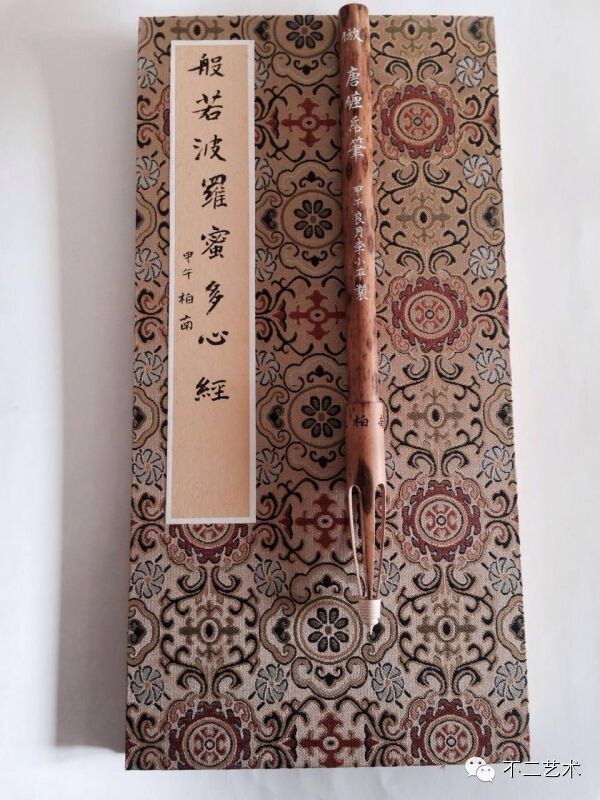 般若波羅蜜多心經
甲午 柏南
倣唐缠帋筆
甲午良月李小平製
柏
不二艺术